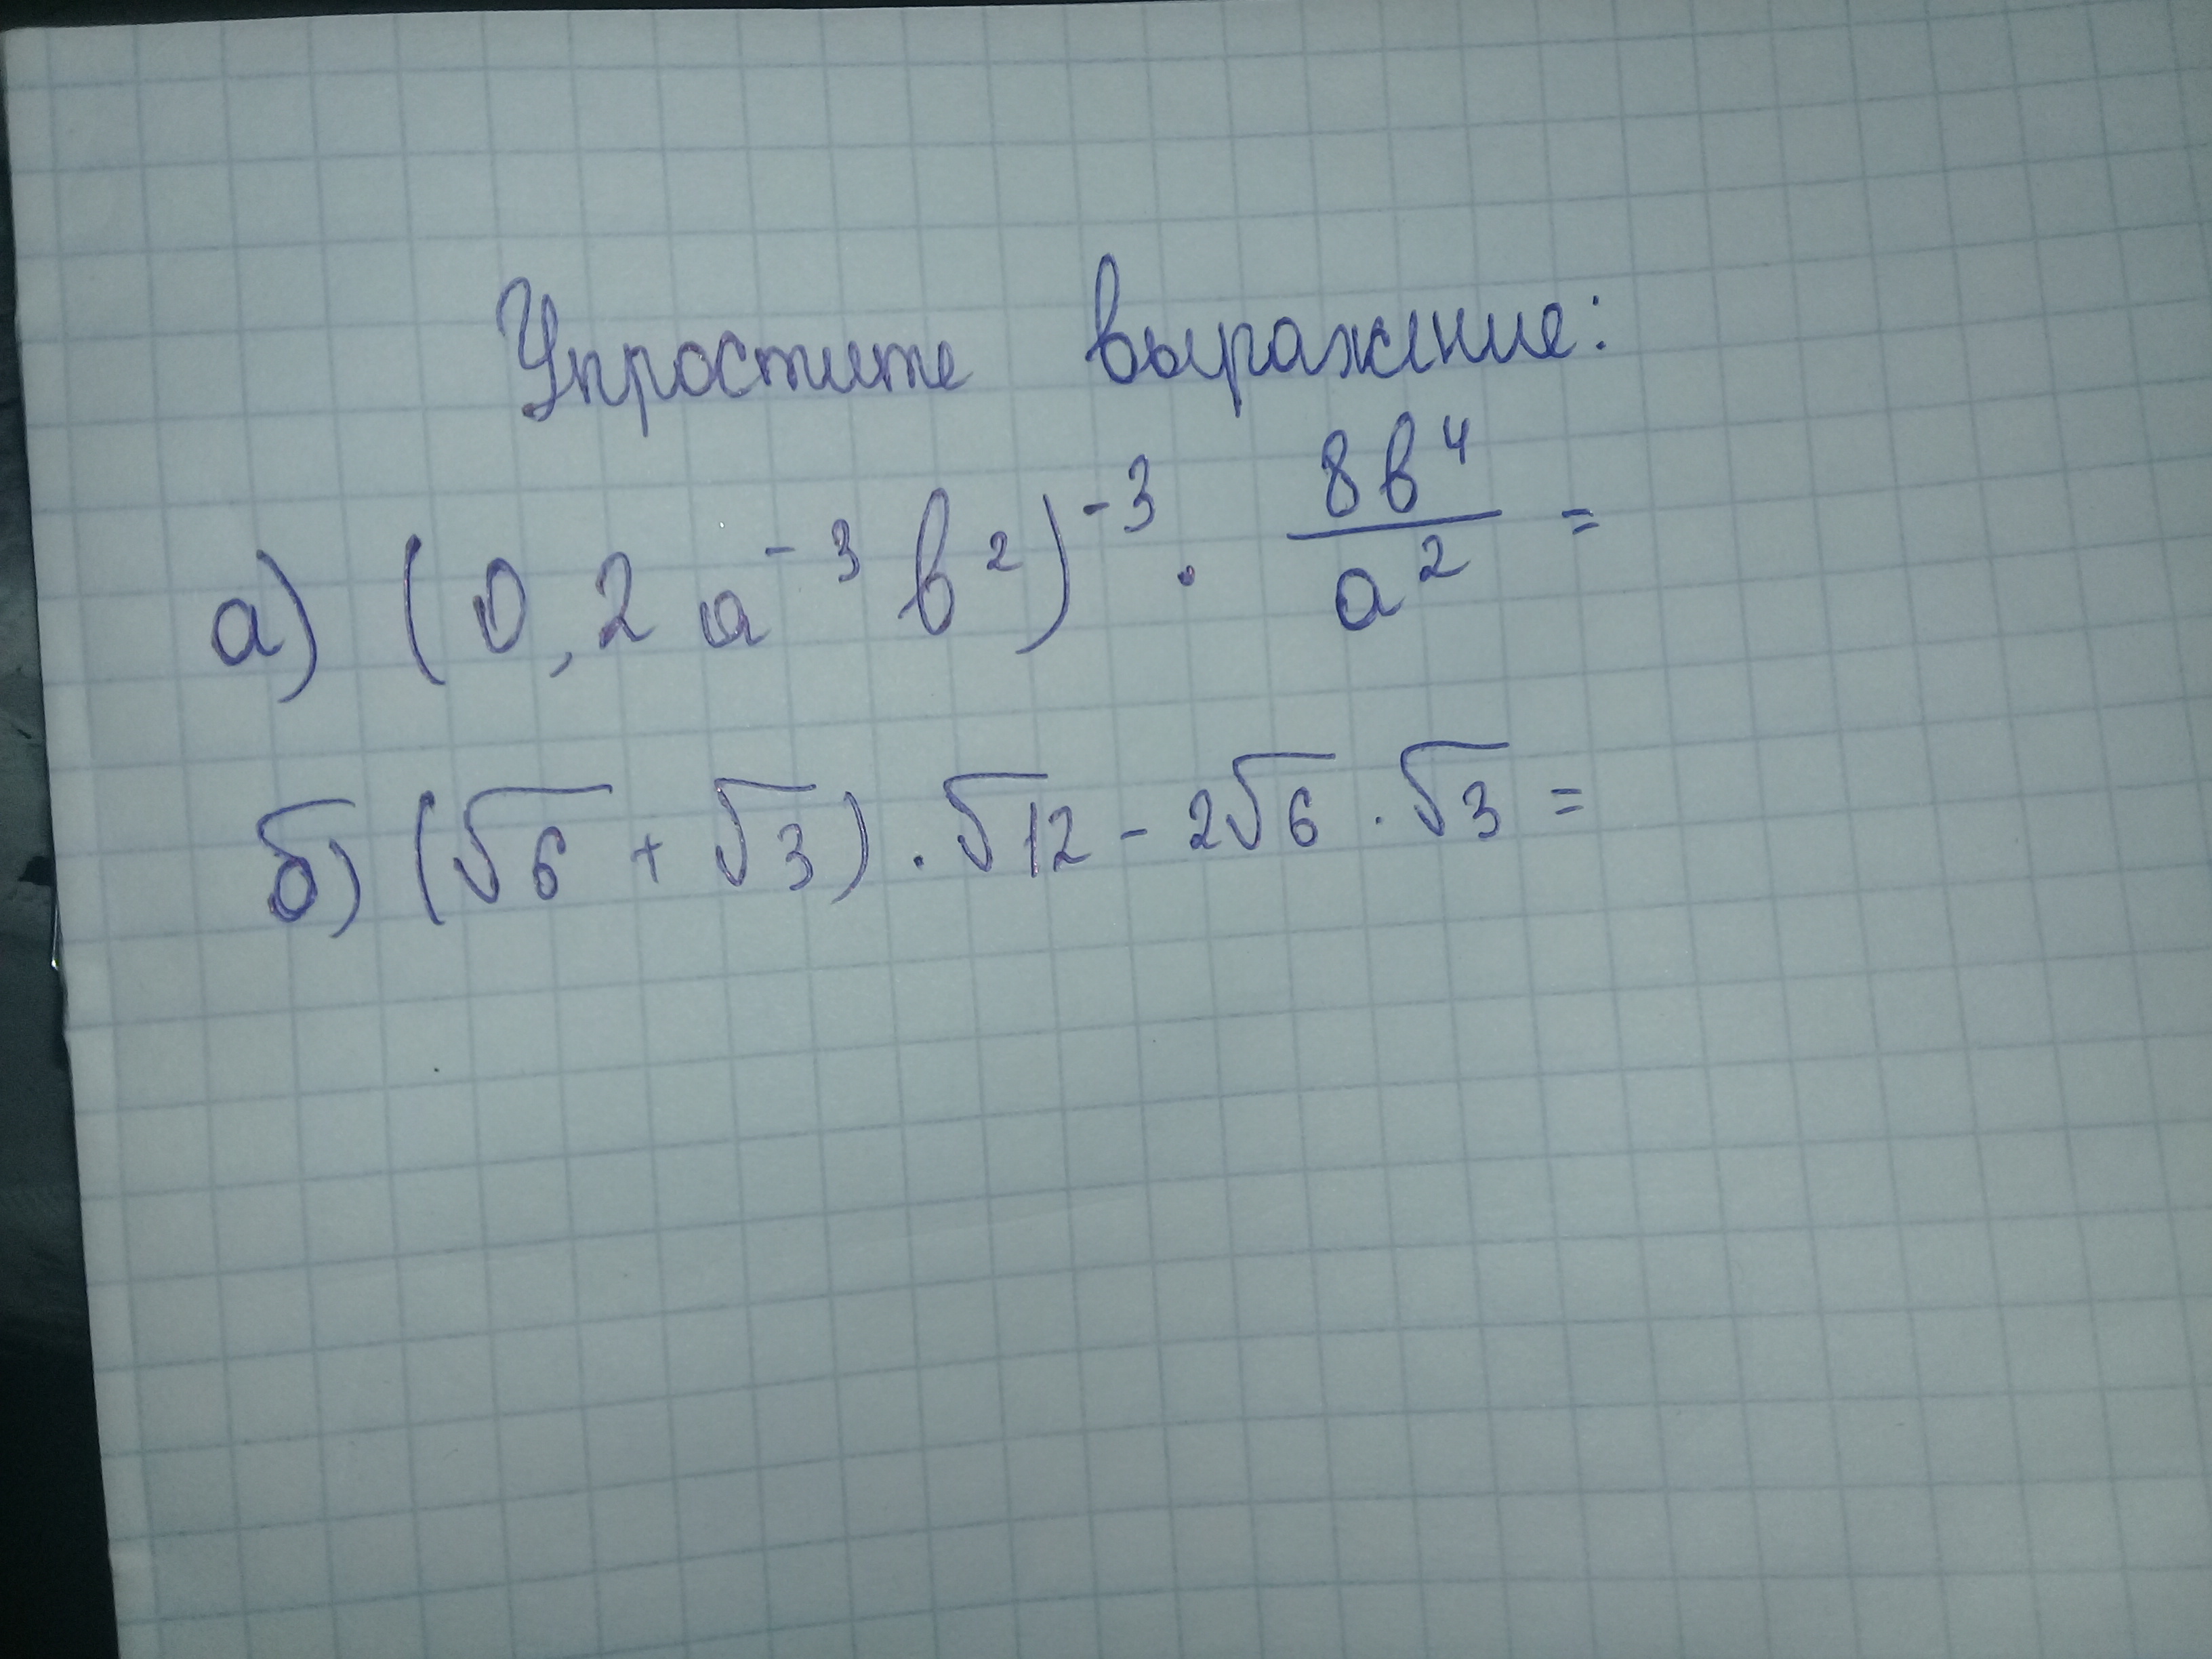 Упростите выражение:
а) (0,2 a⁻³ b²)⁻³ · 8b⁴/a² =
б) (√6 + √3) · √12 - 2√6 · √3 =